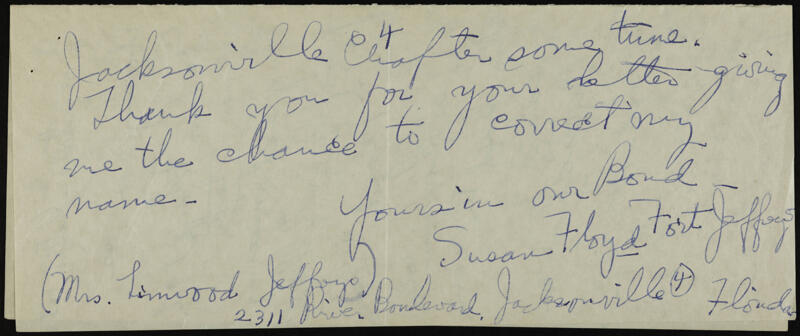 4
Jacksonville Chapter some time.
Thank you for your letter giving
me the chance to correct my
name -
Yours in our Bond -
Susan Floyd Fort Jeffreys
(Mrs. Linwood Jeffreys)
2311 River Boulevard, Jacksonville 4 Florida